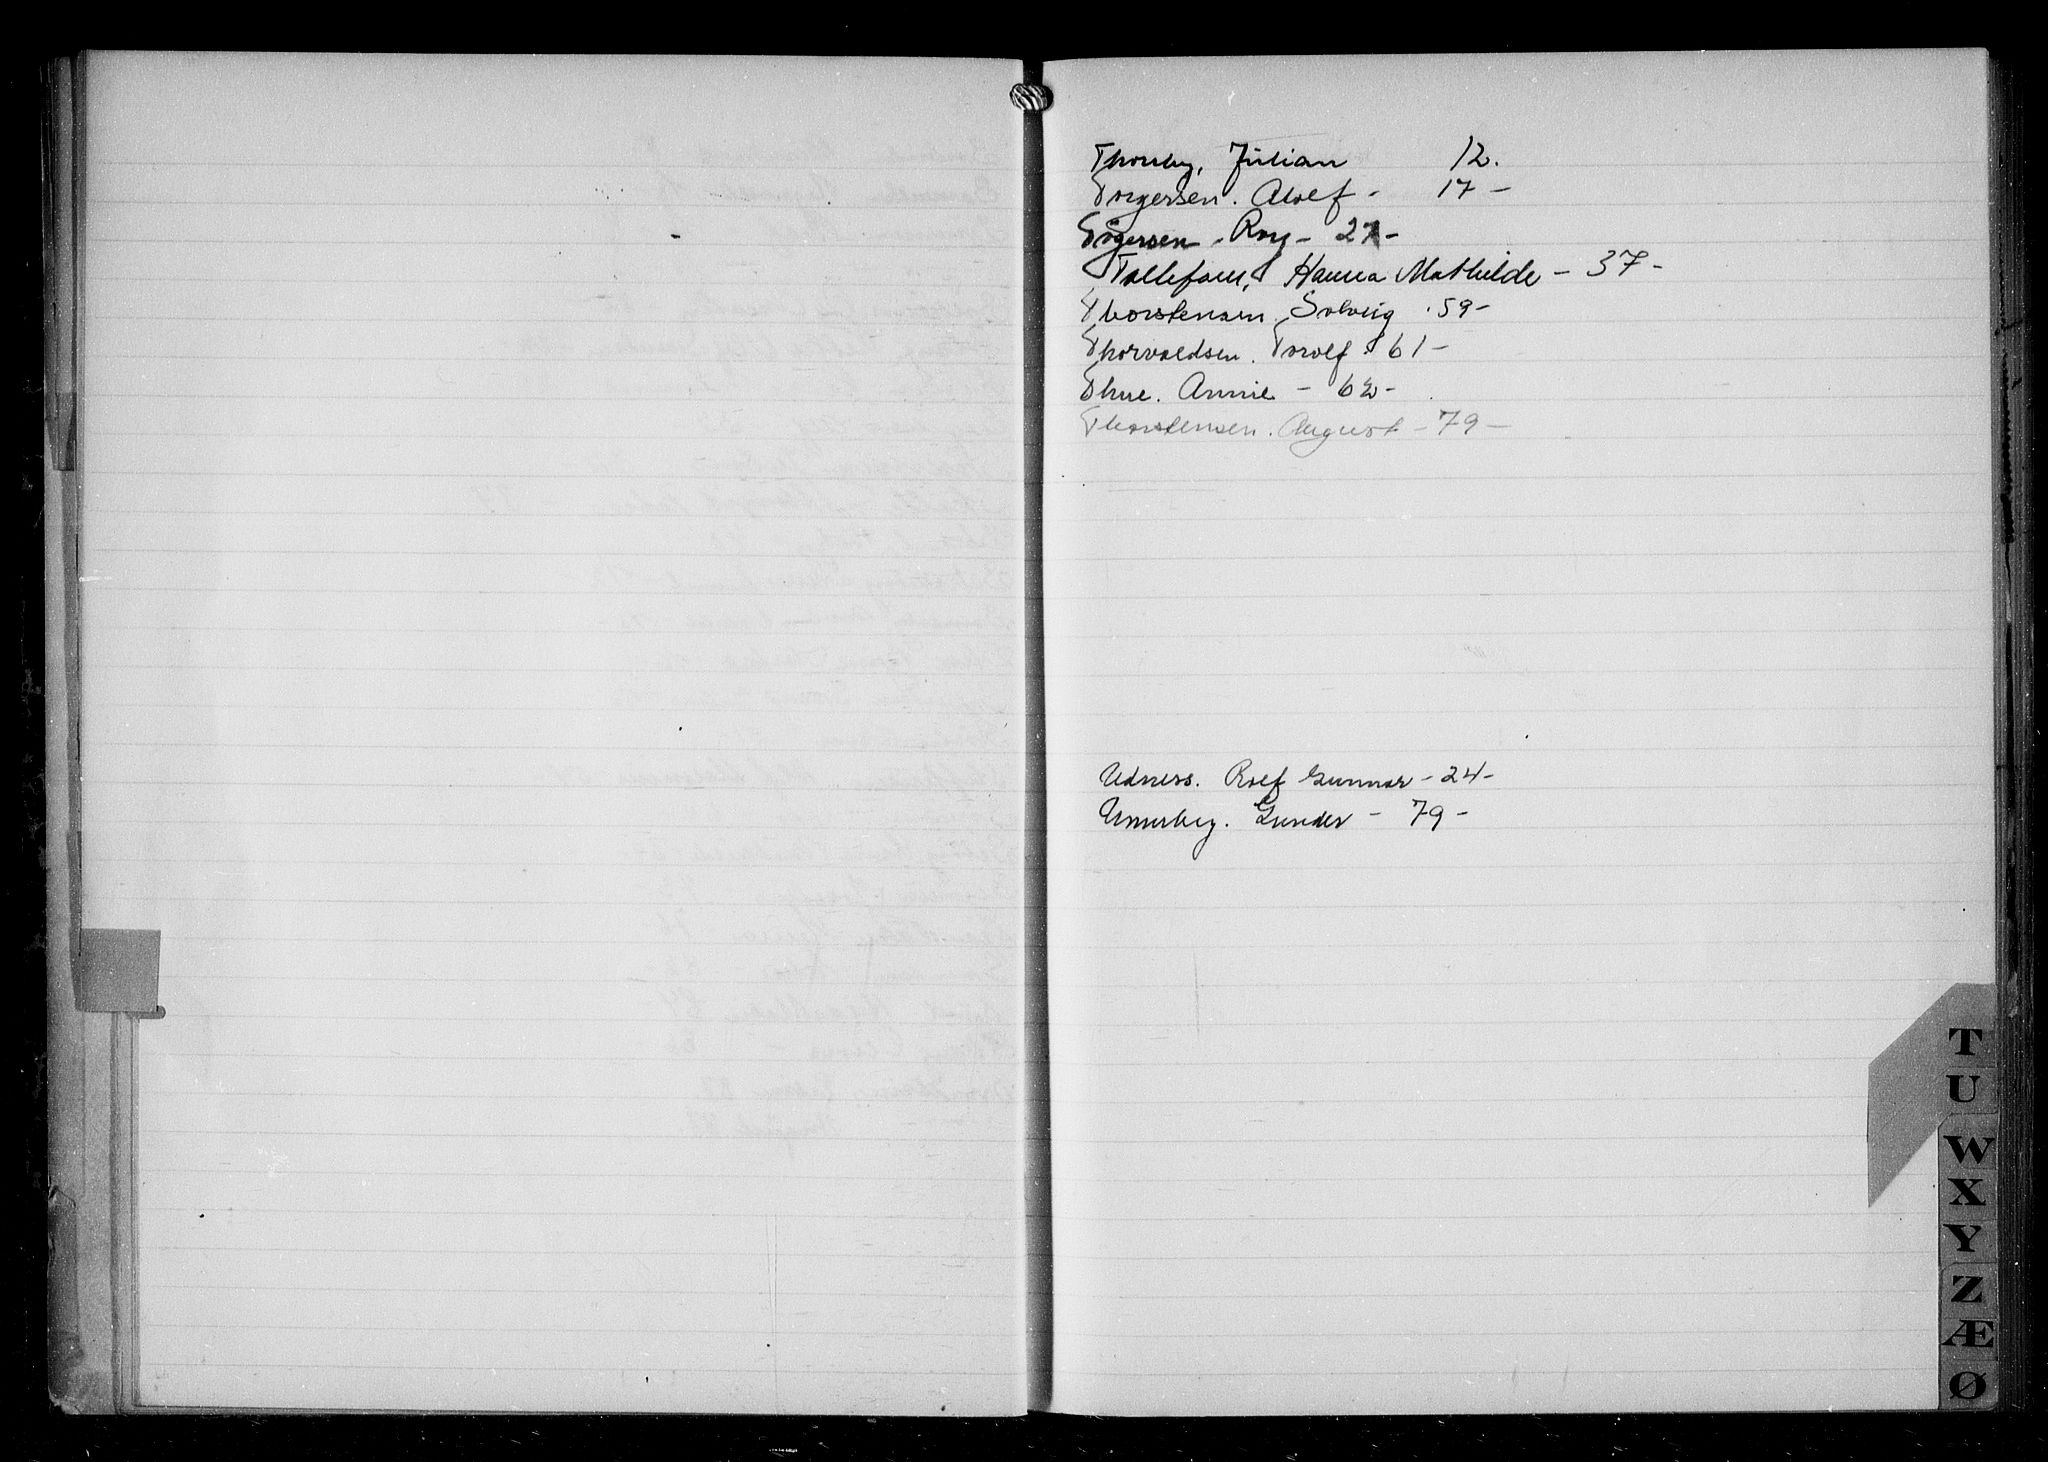 Thornby, Julian 12.
Torgersen. Adolf - 17 -
Tøgersen - Roy - 27 -
Tollefsen, Hanna Mathilde - 37 -
Thorstensen. Solveig - 59 -
Thorvaldsen. Torolf - 61 -
Thue. Annie - 62 -
Thorstensen. August - 79 -
Udness. Rolf Gunnar - 24 -
Gunder - 79 -
T
U
W
X
Y
Z
Æ
Ø